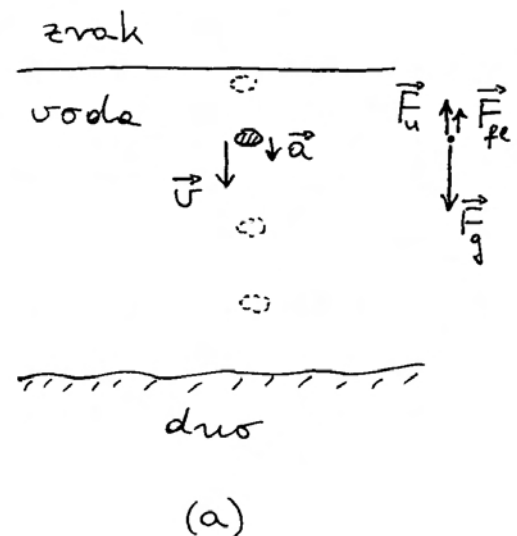 zrak
voda
v⃗ a⃗
F⃗u F⃗fl
F⃗g
dno
(a)